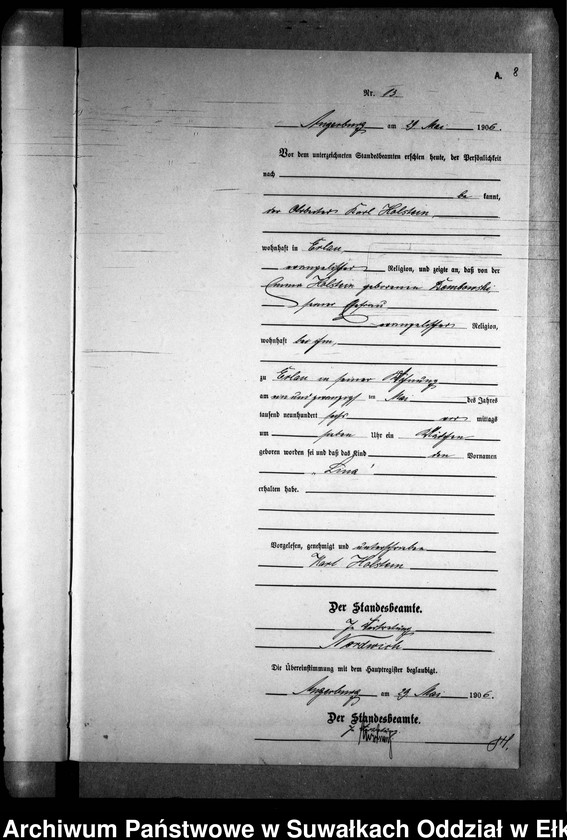 A. 8
Nr. 13
Angerburg am 29 Mai 1906.
Vor dem unterzeichneten Standesbeamten erschien heute, der Persönlichkeit
nach
be kannt,
der Karl Holstein,
wohnhaft in Erlau
evangelischer Religion, und zeigte an, daß von der
Holstein geborenen Dombowski
seiner Ehefrau
evangelischer Religion,
wohnhaft bei ihm,
zu Erlau in seiner Wohnung
am ein und zwanzigsten Mai des Jahres
tausend neunhundert sechs vor mittags
um sieben Uhr ein Mädchen
geboren worden sei und daß das Kind den Vornamen
„Lina“
erhalten habe.
Vorgelesen, genehmigt und unterschrieben
Karl Holstein
Der Standesbeamte.
In Vertretung
Nordwich
Die Übereinstimmung mit dem Hauptregister beglaubigt.
Angerburg am 29 Mai 1906.
Der Standesbeamte.
In Vertretung
Archiwum Państwowe w Suwałkach Oddział w Ełk